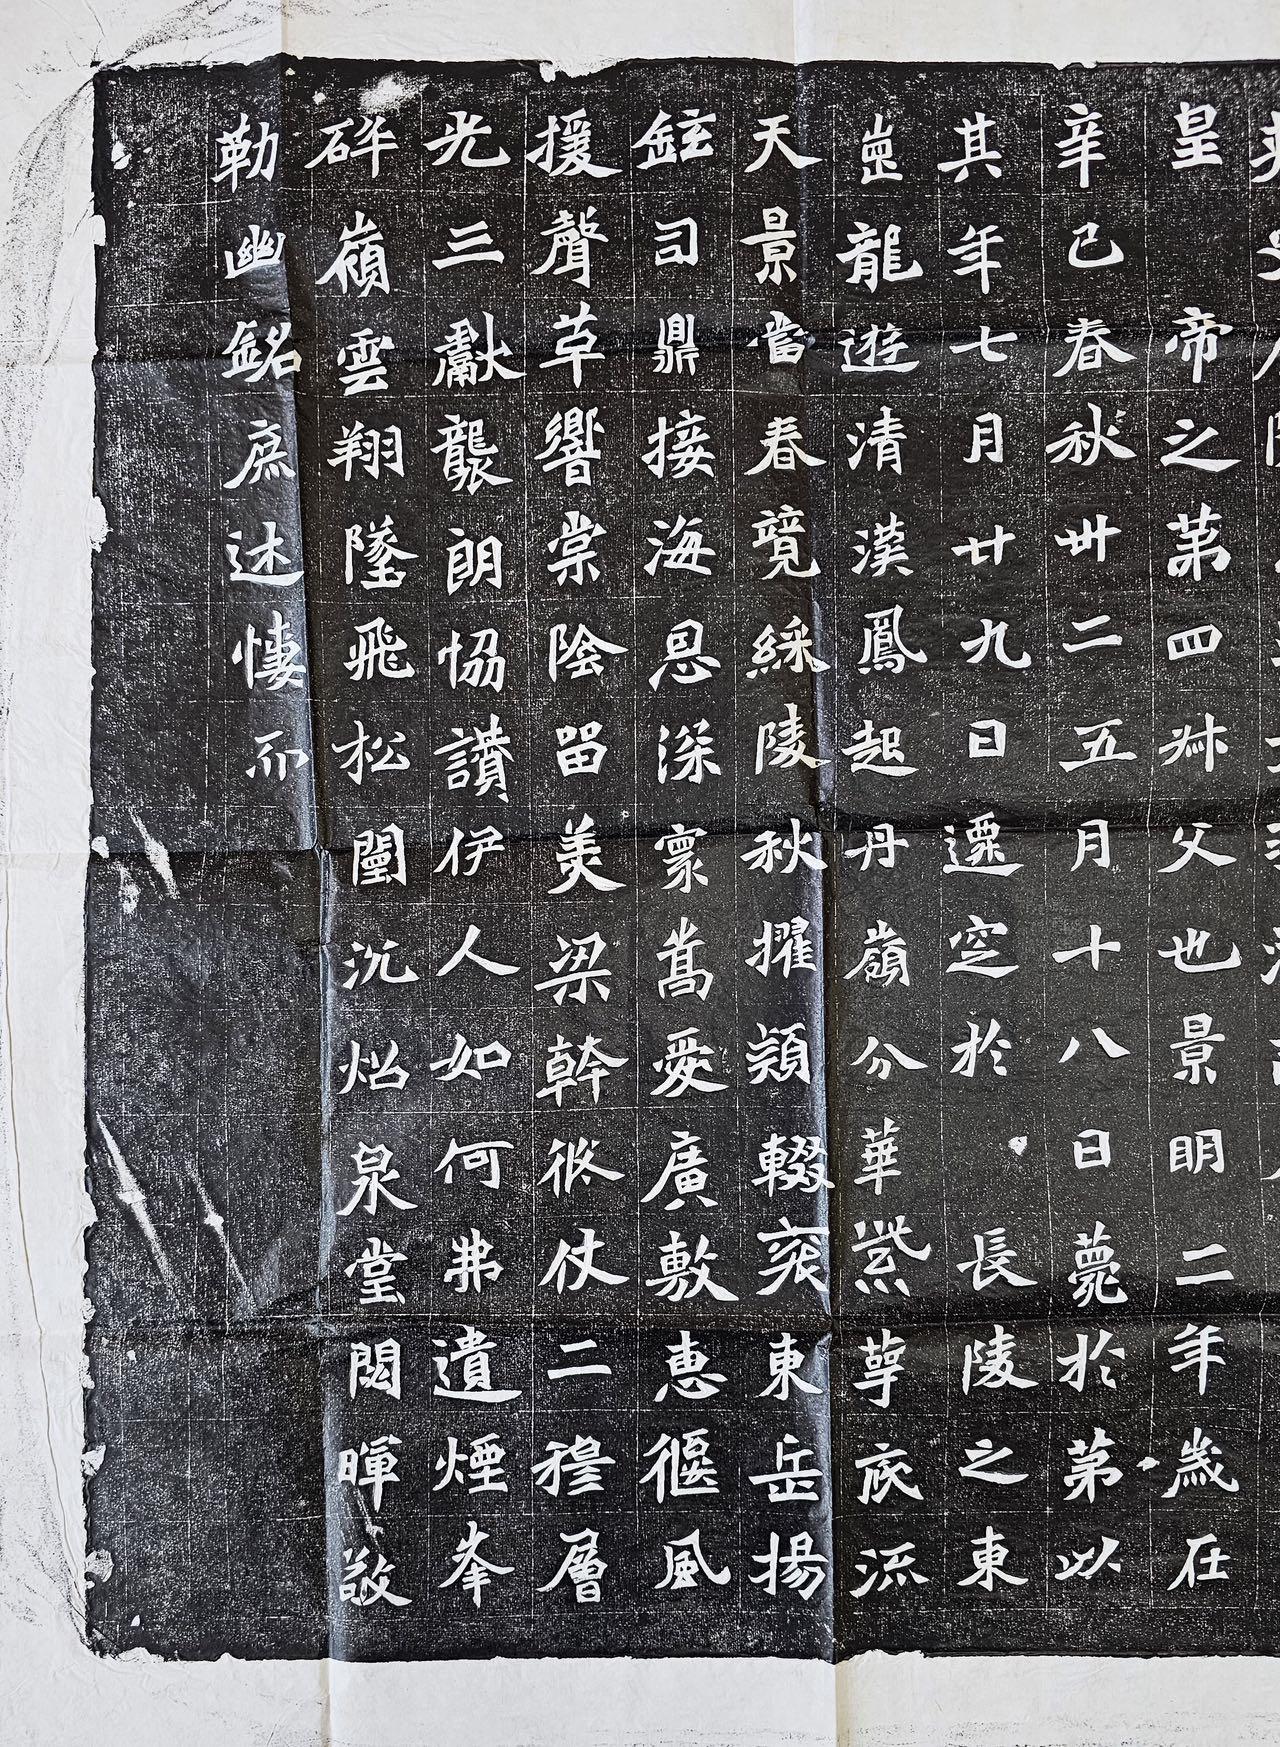 皇帝之第四叔父也景明二年歲在
辛巳春秋卅二五月十八日薨於第以
其年七月廿九日遷窆於長陵之東
崗龍遊清漢鳳起丹嶺分華紫萼衣流
天景當春競綵陵秋擢穎輟寀東岳揚
鉉司鼎接海恩深寰嵩愛廣敷惠偃風
援聲草響棠陰留美梁幹收仗二穆層
光三獻襲朗協讚伊人如何弗遺煙峯
碎嶺雲翔墜飛松闉沉炤泉堂閟暉敬
勒幽銘庶述悽而